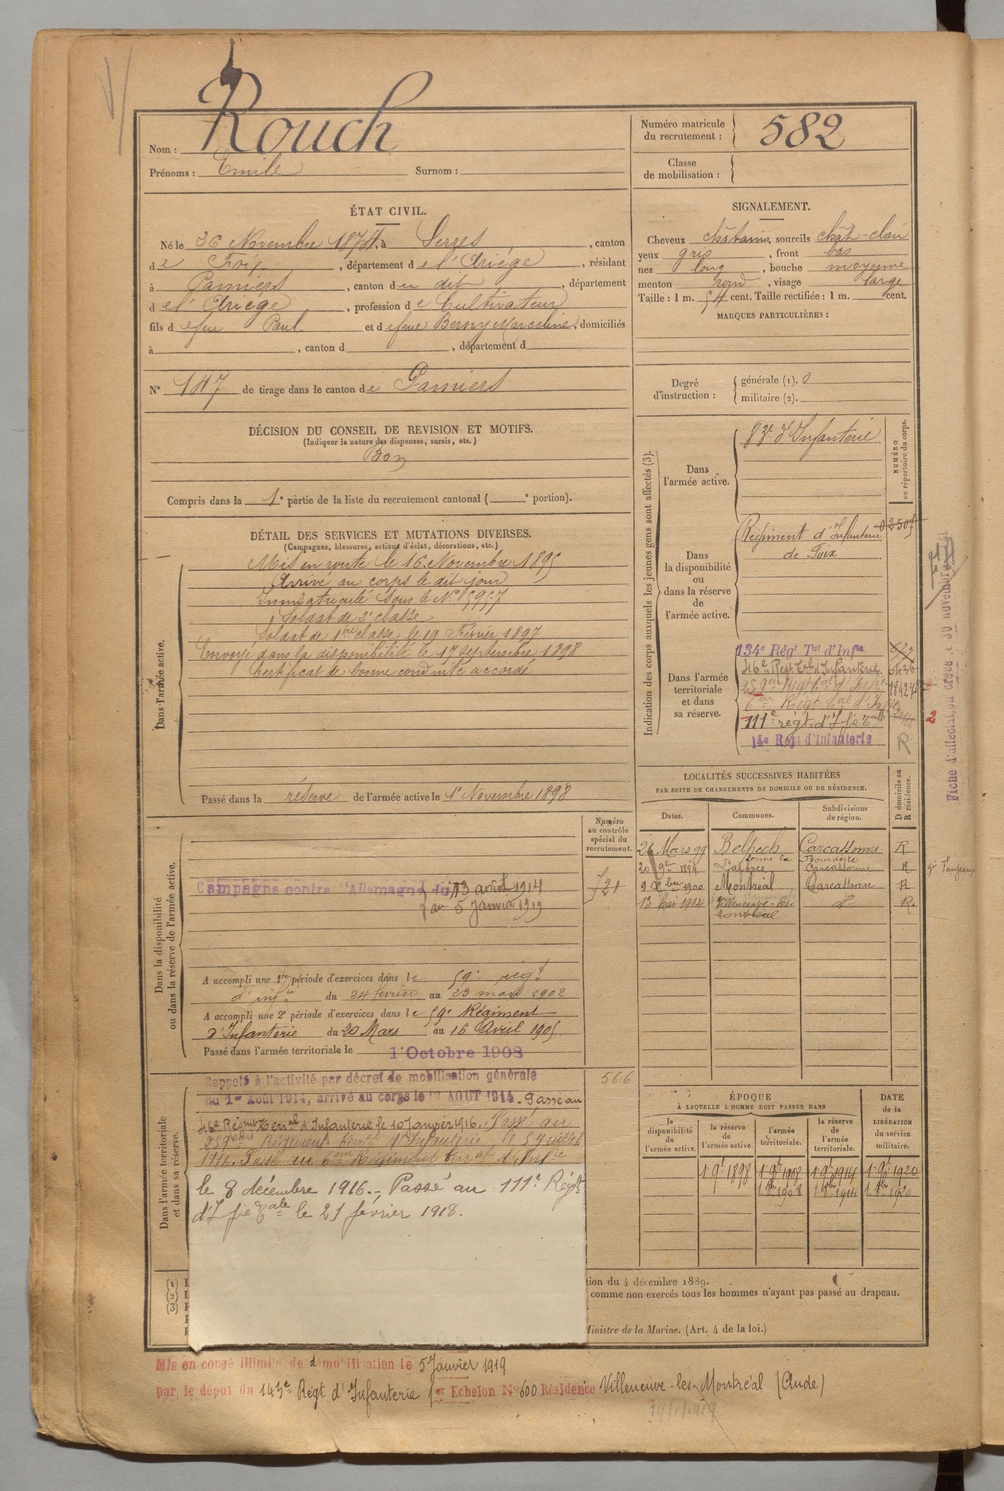 Nom : Rouch
Prénoms : Emile Surnom :
Numéro matricule du recrutement : 582
Classe de mobilisation :
ÉTAT CIVIL.
Né le 26 Novembre 1874, à Serres, canton
de Foix, département de l'Ariège, résidant
à Pamiers, canton du dit, département
de l'Ariège, profession de Cultivateur
fils de feu Paul et de feue Berny Marceline, domiciliés
à , canton d , département d
N° 147 de tirage dans le canton de Pamiers
SIGNALEMENT.
Cheveux châtains, sourcils chât-clair
yeux gris, front bas
nez long, bouche moyenne
menton rond, visage large
Taille : 1 m. 54 cent. Taille rectifiée : 1 m. cent.
MARQUES PARTICULIÈRES :
Degré d'instruction : générale (1). 0
militaire (2).
DÉCISION DU CONSEIL DE REVISION ET MOTIFS.
(Indiquer la nature des dispenses, sursis, etc.)
Bon
Compris dans la 1e partie de la liste du recrutement cantonal ( e portion).
DÉTAIL DES SERVICES ET MUTATIONS DIVERSES.
(Campagnes, blessures, actions d'éclat, décorations, etc.)
Dans l'armée active.
Mis en route le 16 Novembre 1895
Arrivé au corps le dit jour
Immatriculé sous le N° 5957
Soldat de 2e classe
Soldat de 1ère classe le 19 Février 1897
Envoyé dans la disponibilité le 17 septembre 1898
Certificat de bonne conduite accordé
Passé dans la réserve de l'armée active le 1er Novembre 1898
Indication des corps auxquels les jeunes gens sont affectés (3).
NUMÉRO au répertoire du corps.
Dans l'armée active.
83e d'Infanterie
Dans la disponibilité ou dans la réserve de l'armée active.
Régiment d'Infanterie
de Foix
02505
Dans l'armée territoriale et dans sa réserve.
134e Régt Tal d'Infie
46e Régt Tal d'Infanterie
111e régt d'Ifie Tale
14e Régt d'Infanterie
R
LOCALITÉS SUCCESSIVES HABITÉES
PAR SUITE DE CHANGEMENTS DE DOMICILE OU DE RÉSIDENCE.
Dates. Communes. Subdivisions de région. D domicile ou R résidence.
26 Mars 99 Belpech Carcassonne R
20 9bre 1899 Carcassonne R
1900 Montréal Carcassonne R
13 Mai 1914 Villeneuve-les-Montréal do R
Dans la disponibilité ou dans la réserve de l'armée active.
Numéro au contrôle spécial du recrutement.
721
Campagne contre l'Allemagne du 13 août 1914
au 5 Janvier 1919
A accompli une 1re période d'exercices dans le 59e régt
d'infie du 24 février au 23 mars 1902
A accompli une 2e période d'exercices dans le 59e Régiment
d'Infanterie du 20 Mars au 16 Avril 1905
Passé dans l'armée territoriale le 1er Octobre 1908
Dans l'armée territoriale et dans sa réserve.
566
Rappelé à l'activité par décret de mobilisation générale
du 1er Août 1914, arrivé au corps le 13 AOUT 1914. Passé au
46e Régiment Terral d'Infanterie le 10 Janvier 1916. Passé au
259e Régiment terral d'Infanterie le 5 juillet
1916. Passé au 6e Régiment terral d'Infie
le 8 décembre 1916. - Passé au 111e Régt
d'Ifie Tale le 21 février 1918.
ÉPOQUE
À LAQUELLE L'HOMME DOIT PASSER DANS
DATE de la LIBÉRATION du service militaire.
la disponibilité de l'armée active. la réserve de l'armée active. l'armée territoriale. la réserve de l'armée territoriale.
1 9e 1898 1 9e 1908 1 9e 1914 1 9e 1920
1 8bre 1908 1 8bre 1914 1 8bre 1920
(1)
(2)
(3)
tion du 4 décembre 1889.
comme non exercés tous les hommes n'ayant pas passé au drapeau.
Ministre de la Marine. (Art. 4 de la loi.)
Mis en congé illimité de démobilisation le 5 Janvier 1919
par le dépôt du 143e Régt d'Infanterie 1er Echelon N° 600 Résidence Villeneuve-les-Montréal (Aude)